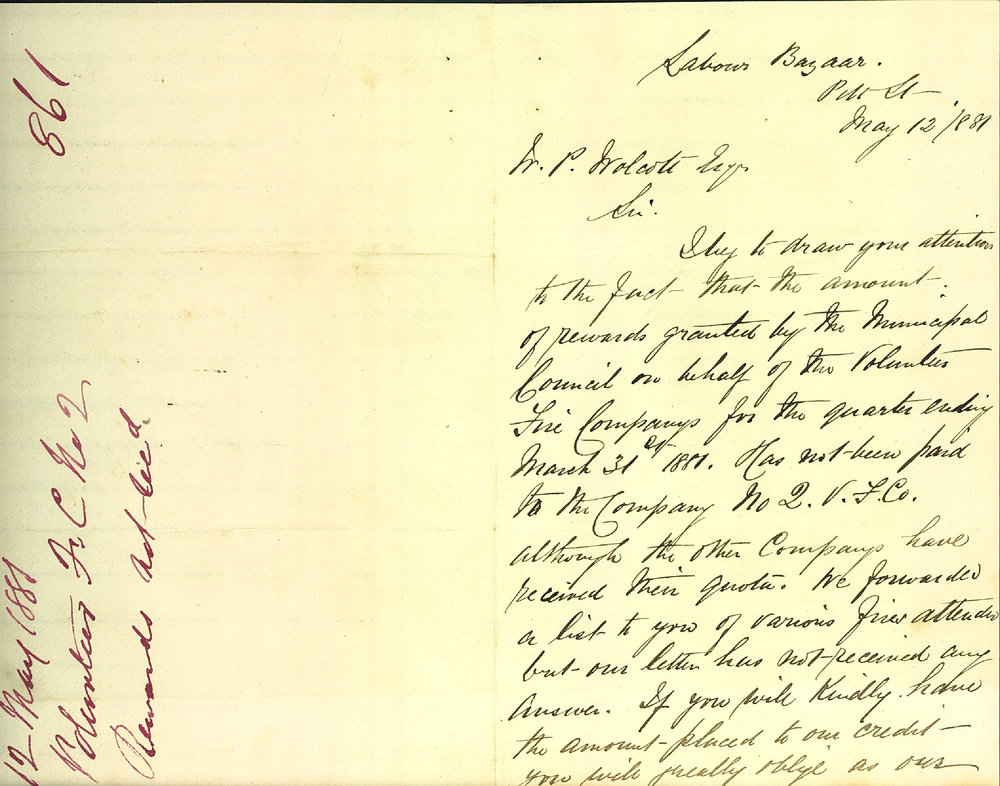 861
12 May 1881
Volunteer F. C. No 2
Rewards not rec'd
Labour Bazaar.
Pitt St
May 12/881
W. P. Wolcott Esqr
Sir.
I beg to draw your attention
to the fact that the amount
of rewards granted by the Municipal
Council on behalf of the Volunteer
Fire Companys for the quarter ending
March 31st 1881. Has not been paid
to the Company No 2. V. F. Co.
although the other Companys have
received their quota. We forwarded
a list to you of various fires attended
but our letter has not received any
answer. If you will Kindly have
the amount placed to our credit
you will greatly oblige as our